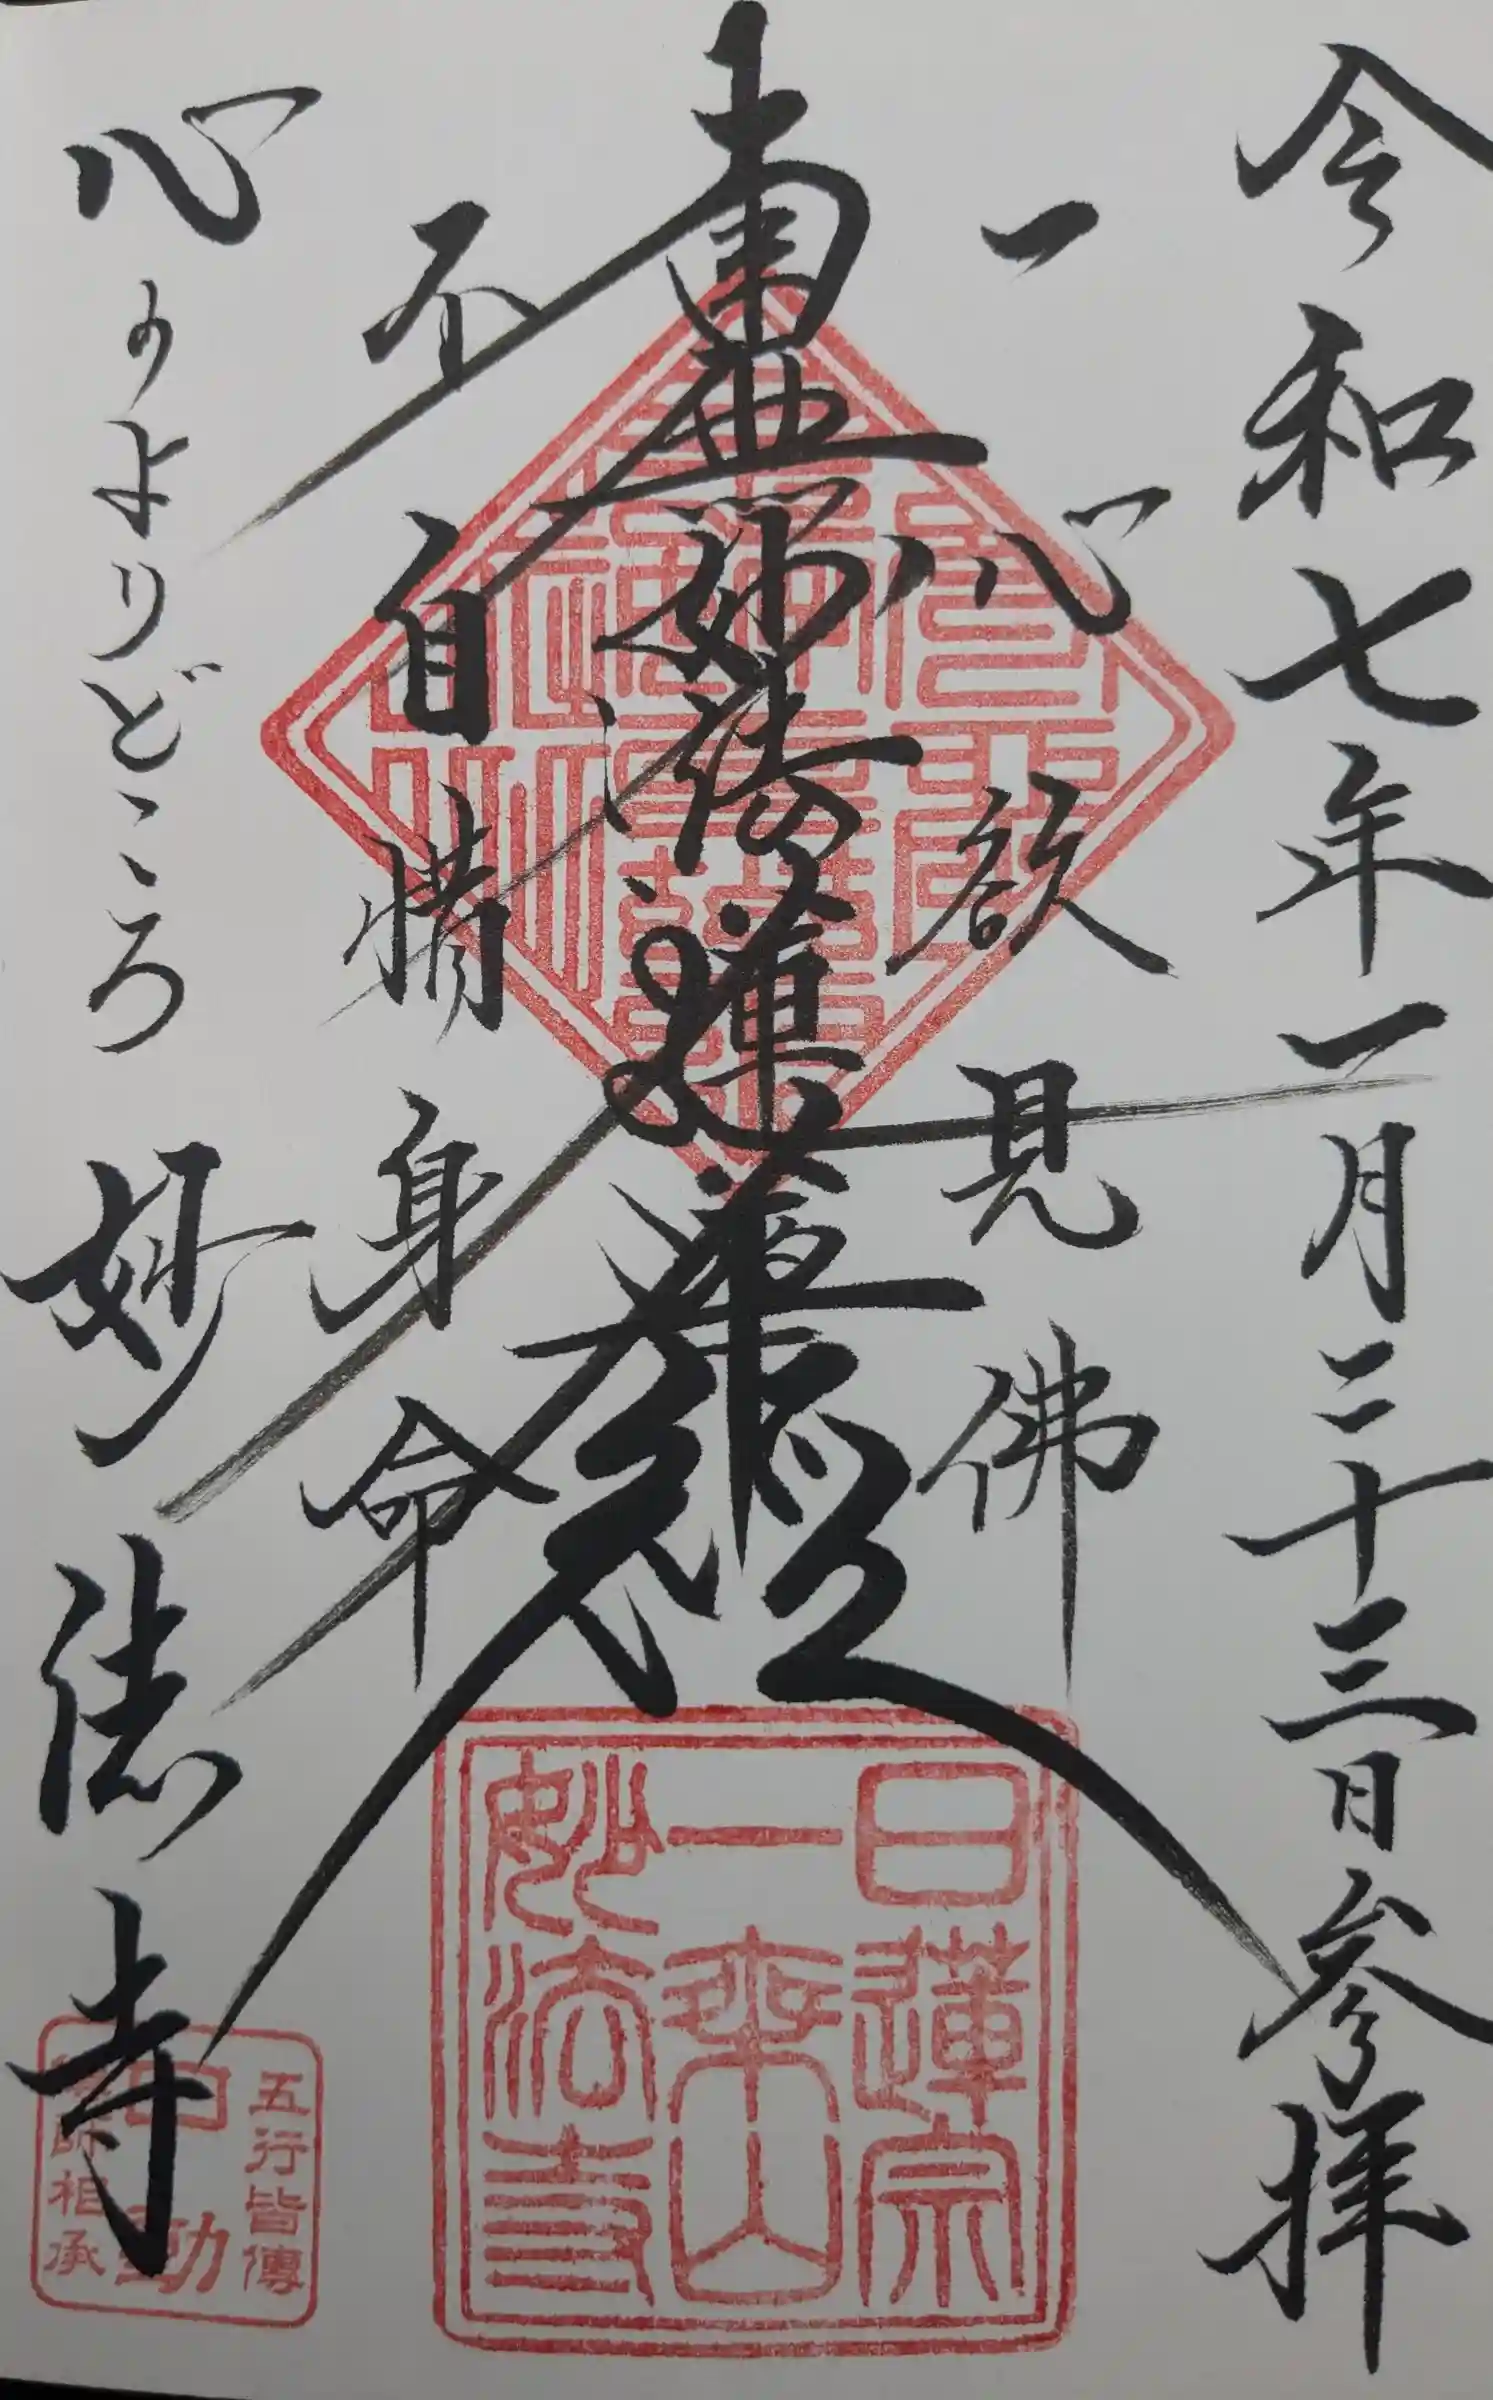 令和七年一月二十三日参拝
一心欲見佛
南無妙法蓮華経
不自惜身命
心のよりどころ 妙法寺
日蓮宗
一乗山
妙法寺
五行皆傳
相承